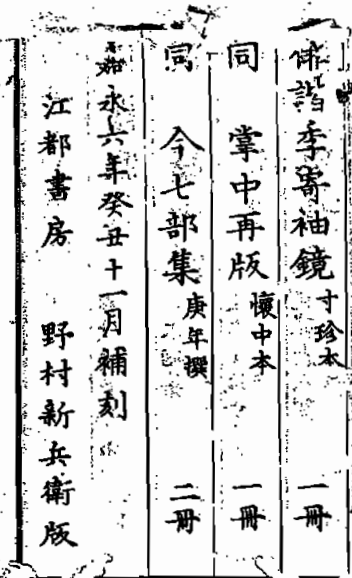 俳諧季寄袖鏡 寸珍本 一冊
同 掌中再版 懐中本 一冊
同 今七部集 庚年撰 二冊
嘉永六年癸丑十一月補刻
江都書房 野村新兵衛版